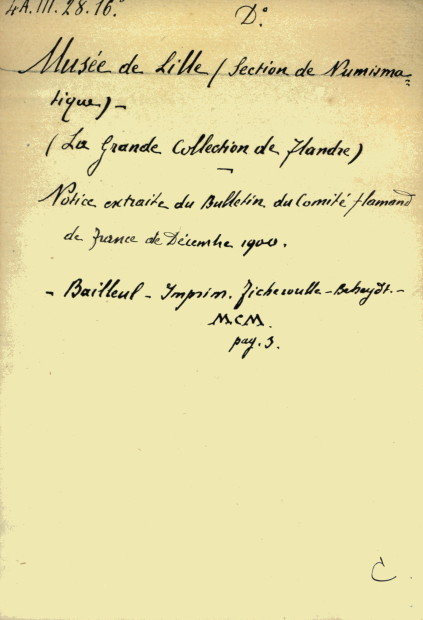 4A.III.28.16°
D°
Musée de Lille (Section de Numisma=
tique) -
(La Grande Collection de Flandre)
Notice extraite du Bulletin du Comité flamand
de France de Décembre 1900.
- Bailleul - Imprim. Ficheroulle - Beheydt. -
M.C.M.
pag. 3.
C